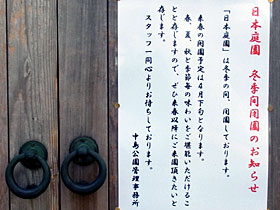 日本庭園　冬季間閉園のお知らせ
「日本庭園」は冬季の間、閉園しております。
来春の開園予定は4月下旬となります。
春、夏、秋と季節毎の味わいをご堪能いただけるこ
とと存じますので、ぜひ来春以降にご来園頂きたいと
存じます。
スタッフ一同心よりお待ちしております。
中島公園管理事務所